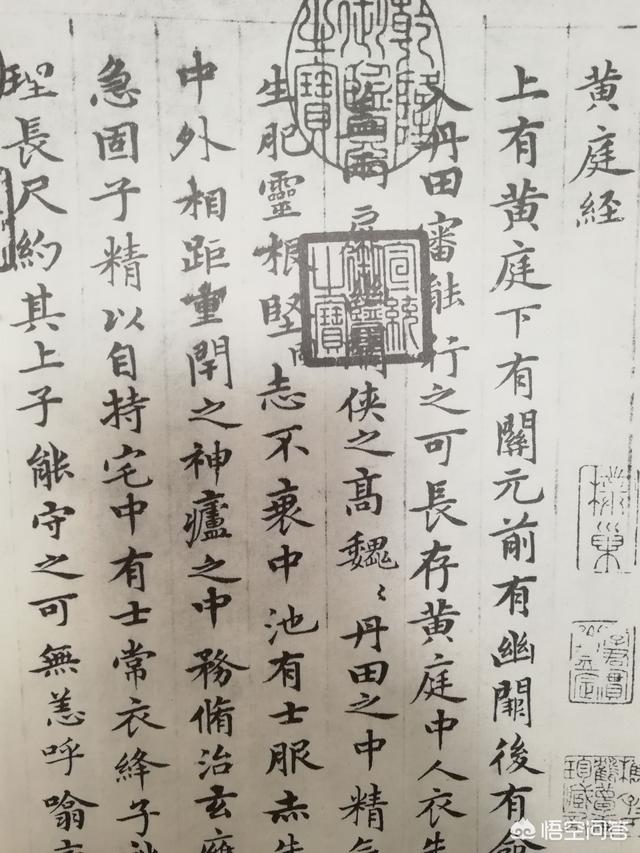 黄庭経
上有黄庭下有關元前有幽闕後有命
入丹田審能行之可長存黄庭中人衣
蓋兩扉幽闕侠之高魏〻丹田之中精氣
生肥靈根堅志不衰中池有士服赤
中外相距重閇之神廬之中務脩治玄
急固子精以自持宅中有士常衣絳子
理長尺約其上子能守之可無恙呼噏
乾隆御覽之寶
宣統御覽之寶
悟空问答